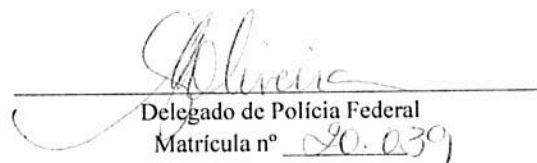 Oliveira
Delegado de Polícia Federal
Matrícula nº 20.039